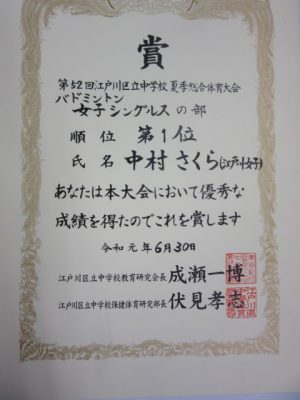 賞
第52回江戸川区立中学校 夏季総合体育大会
バドミントン
女子シングルスの部
順位 第1位
氏名 中村さくら(江戸川女子)
あなたは本大会において優秀な
成績を得たのでこれを賞します
令和元年6月30日
江戸川区立中学校教育研究会長 成瀬一博
江戸川区立中学校保健体育研究部長 伏見孝志